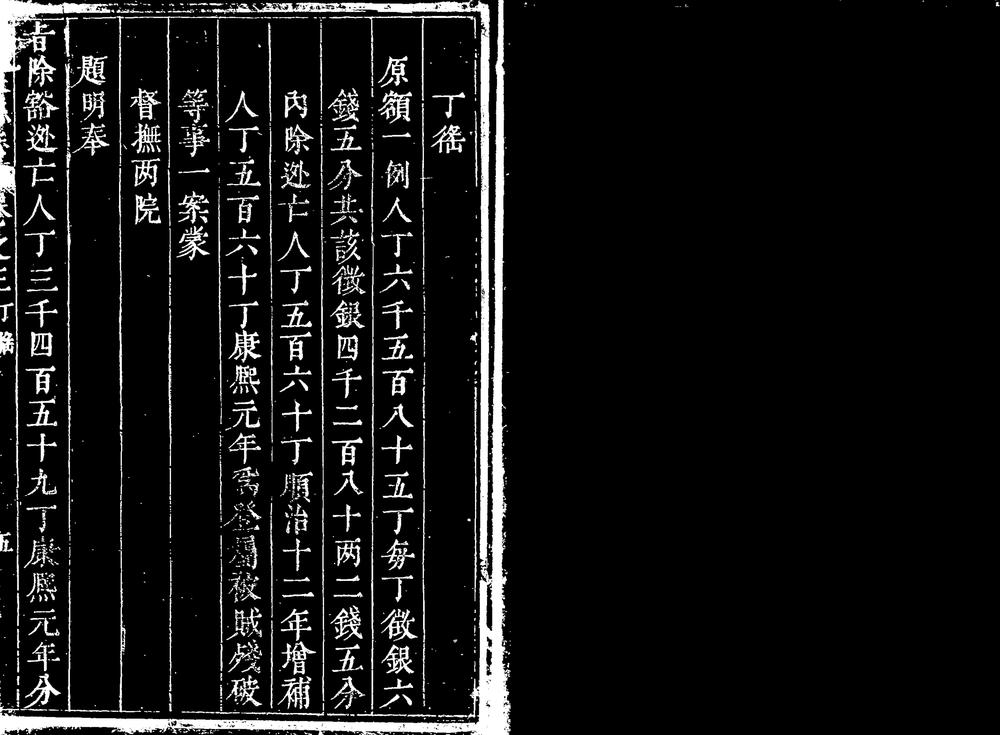 丁徭
原額一例人丁六千五百八十五丁每丁徵銀六
錢五分共該徵銀四千二百八十两二錢五分
內除逃亡人丁五百六十丁順治十二年增補
人丁五百六十丁康熈元年爲登屬被賊殘破
等事一案蒙
督撫两院
題明奉
旨除豁逃亡人丁三千四百五十九丁康熈元年分
卷之三丁徭 五